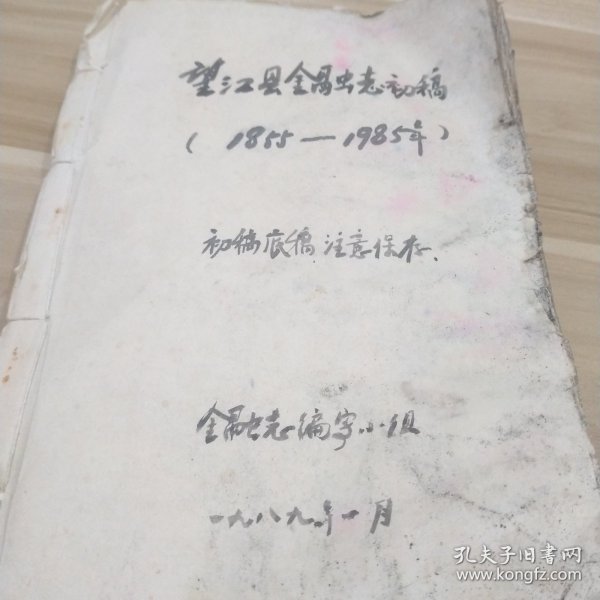 望江县金融志初稿
(1855—1985年)
初稿底稿.注意保存.
金融志编写小组
一九八九年一月
孔夫子旧书网
www.kongfz.com